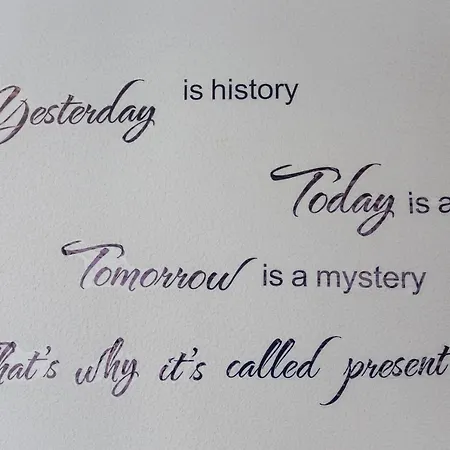 Yesterday is history
Today is a
Tomorrow is a mystery
hat's why it's called present